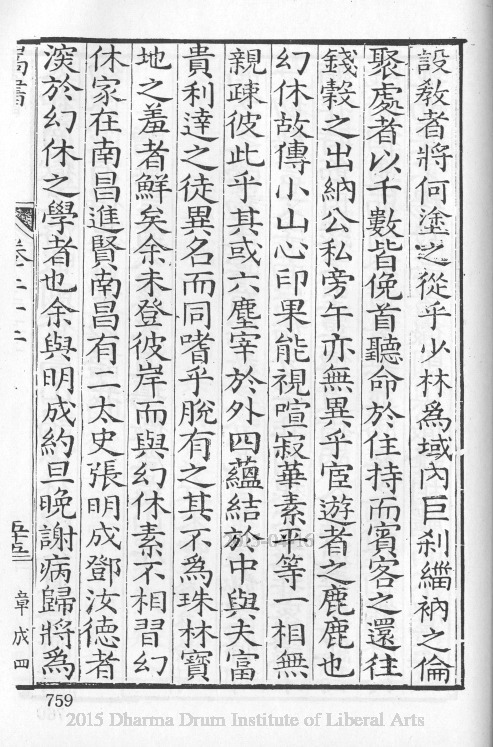 設教者將何塗之從乎少林爲域內巨刹緇衲之倫
聚處者以千數皆俛首聽命於住持而賓客之還往
錢穀之出納公私旁午亦無異乎宦遊者之鹿鹿也
幻休故傳小山心印果能視喧寂華素平等一相無
親疎彼此乎其或六塵宰於外四蘊結於中與夫富
貴利達之徒異名而同嗜乎脫有之其不爲珠林寶
地之羞者鮮矣余未登彼岸而與幻休素不相習幻
休家在南昌進賢南昌有二太史張明成鄧汝德者
深於幻休之學者也余與明成約旦晚謝病歸將爲
卷二十二
五十五
章成四
759
2015 Dharma Drum Institute of Liberal Arts